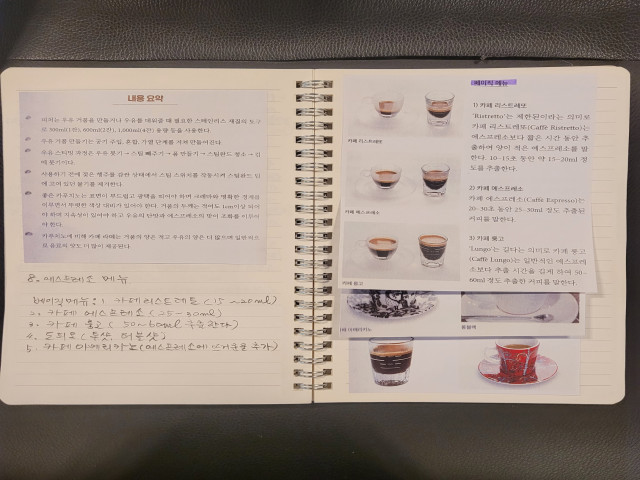 내용 요약
피처는 우유 거품을 만들거나 우유를 데워줄 때 필요한 스테인리스 재질의 도구
로 300ml(1잔), 600ml(2잔), 1,000ml(4잔) 용량 등을 사용한다.
우유 거품 만들기는 공기 주입, 혼합, 가열 단계를 거쳐 만들어진다.
우유 스티밍 과정은 우유 붓기 → 스팀 빼주기 → 폼 만들기 → 스팀완드 청소 →
붓기이다.
하여 스팀 스위치를 작동시켜 스팀완드 안
에 고여 있던 물기를 제거한다.
좋은 카푸치노는 표면이 부드럽고 광택을 띠어야 하며 크레마와 명확한 경계를
이루면서 뚜렷한 색상 대비가 있어야 한다. 거품의 두께는 적어도 1cm이상 되어
야 하며 지속성이 있어야 하고 우유의 단맛과 에스프레소의 맛이 조화를 이루어
야 한다.
카푸치노에 비해 카페 라떼는 거품의 양은 적고 우유의 양은 더 많으며
8. 에스프레소 메뉴
베이직메뉴: 1. 카페 리스트레토 (15~20ml)
2. 카페 에스프레소 (25-30ml)
3. 카페 룽고 (50~60ml 추출한다)
4. 도피오 (투샷, 더블샷)
5. 카페 아메리카노 (에스프레소에 뜨거운물 추가)
베이직 메뉴
1) 카페 리스트레또
'Ristretto'는 '제한된'이라는 의미로
카페 리스트레또(Caffè Ristretto)는
에스프레소보다 짧은 시간 동안 추
출하여 양이 적은 에스프레소를 말
한다. 10~15초 동안 약 15~20ml 정
도를 추출한다.
카페 리스트레또
2) 카페 에스프레소
카페 에스프레소(Caffè Espresso)는
20~30초 동안 25~30ml 정도 추출된
커피를 말한다.
카페 에스프레소
3) 카페 룽고
'Lungo'는 길다는 의미로 카페 룽고
(Caffè Lungo)는 일반적인 에스프레
소보다 추출 시간을 길게 하여 50~
60ml 정도 추출한 커피를 말한다.
카페 룽고
아메리카노